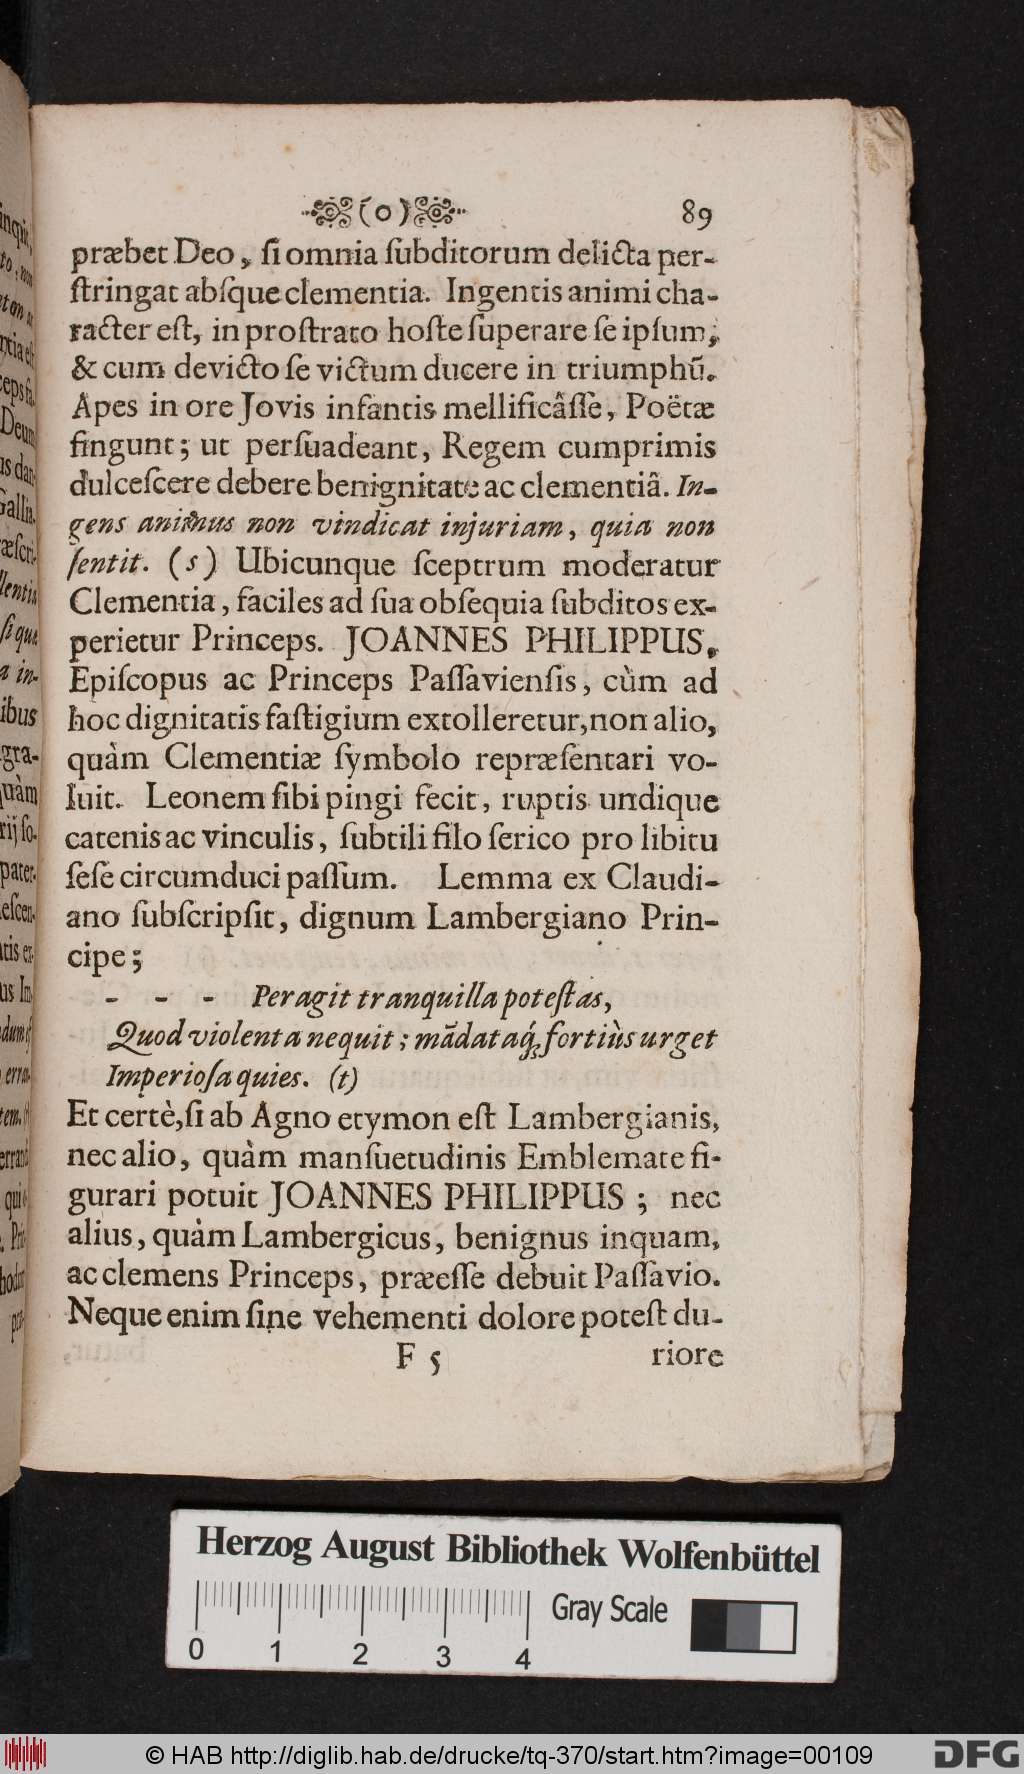 (o) 89
præbet Deo, ſi omnia ſubditorum delicta per-
ſtringat abſque clementia. Ingentis animi cha-
racter eſt, in proſtrato hoſte ſuperare ſe ipſum,
& cum devicto ſe victum ducere in triumphū.
Apes in ore Jovis infantis mellificâſſe, Poëtæ
fingunt; ut perſuadeant, Regem cumprimis
dulceſcere debere benignitate ac clementiâ. In-
gens animus non vindicat injuriam, quia non
ſentit. (s) Ubicunque ſceptrum moderatur
Clementia, faciles ad ſua obſequia ſubditos ex-
perietur Princeps. JOANNES PHILIPPUS,
Epiſcopus ac Princeps Paſſavienſis, cùm ad
hoc dignitatis faſtigium extolleretur, non alio,
quàm Clementiæ ſymbolo repræſentari vo-
luit. Leonem ſibi pingi fecit, ruptis undique
catenis ac vinculis, ſubtili filo ſerico pro libitu
ſeſe circumduci paſſum. Lemma ex Claudi-
ano ſubſcripſit, dignum Lambergiano Prin-
cipe;
- - - Peragit tranquilla poteſtas,
Quod violenta nequit; mādataq́; fortiùs urget
Imperioſa quies. (t)
Et certè, ſi ab Agno etymon eſt Lambergianis,
nec alio, quàm manſuetudinis Emblemate fi-
gurari potuit JOANNES PHILIPPUS; nec
alius, quàm Lambergicus, benignus inquam,
ac clemens Princeps, præeſſe debuit Paſſavio.
Neque enim ſine vehementi dolore poteſt du-
F 5 riore
Herzog August Bibliothek Wolfenbüttel
Gray Scale
0 1 2 3 4
© HAB http://diglib.hab.de/drucke/tq-370/start.htm?image=00109
DFG